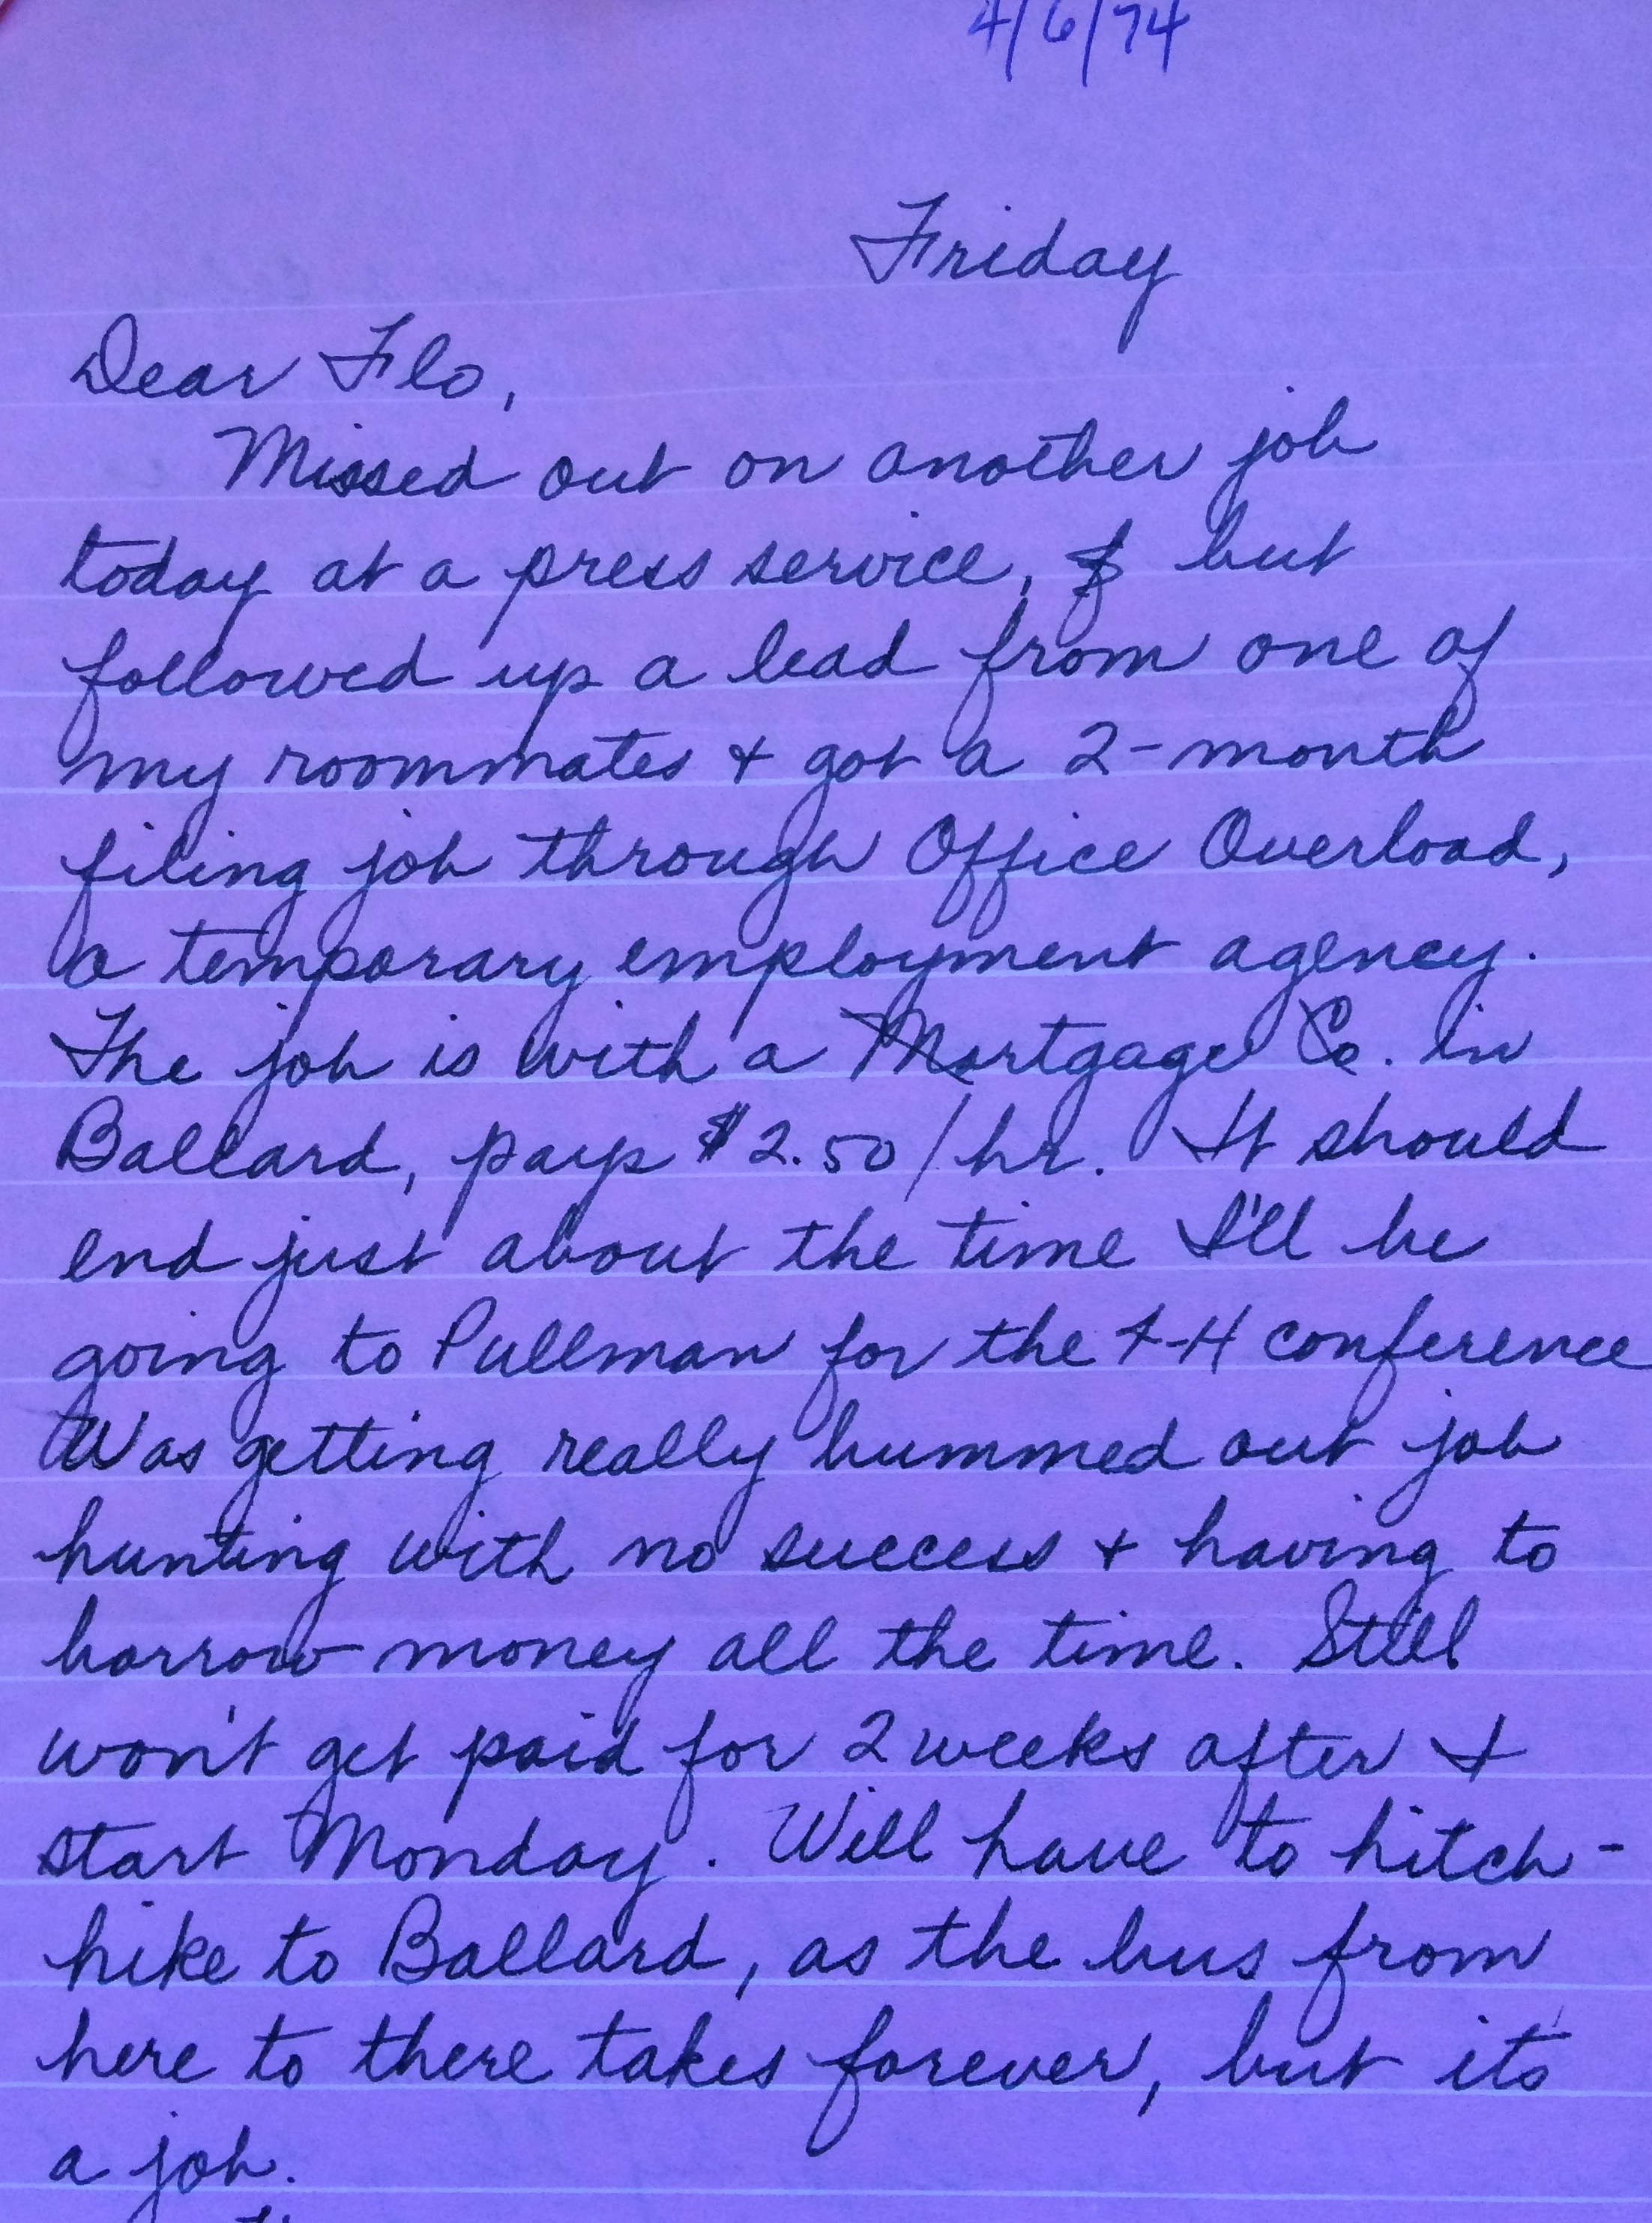 4/6/74
Friday
Dear Flo,
Missed out on another job
today at a press service, but
followed up a lead from one of
my roommates + got a 2-month
filing job through Office Overload,
a temporary employment agency.
The job is with a Mortgage Co. in
Ballard, pays $2.50/hr. It should
end just about the time I'll be
going to Pullman for the 4-H conference
Was getting really bummed out job
hunting with no success + having to
borrow money all the time. Still
won't get paid for 2 weeks after I
start Monday. Will have to hitch-
hike to Ballard, as the bus from
here to there takes forever, but it's
a job.